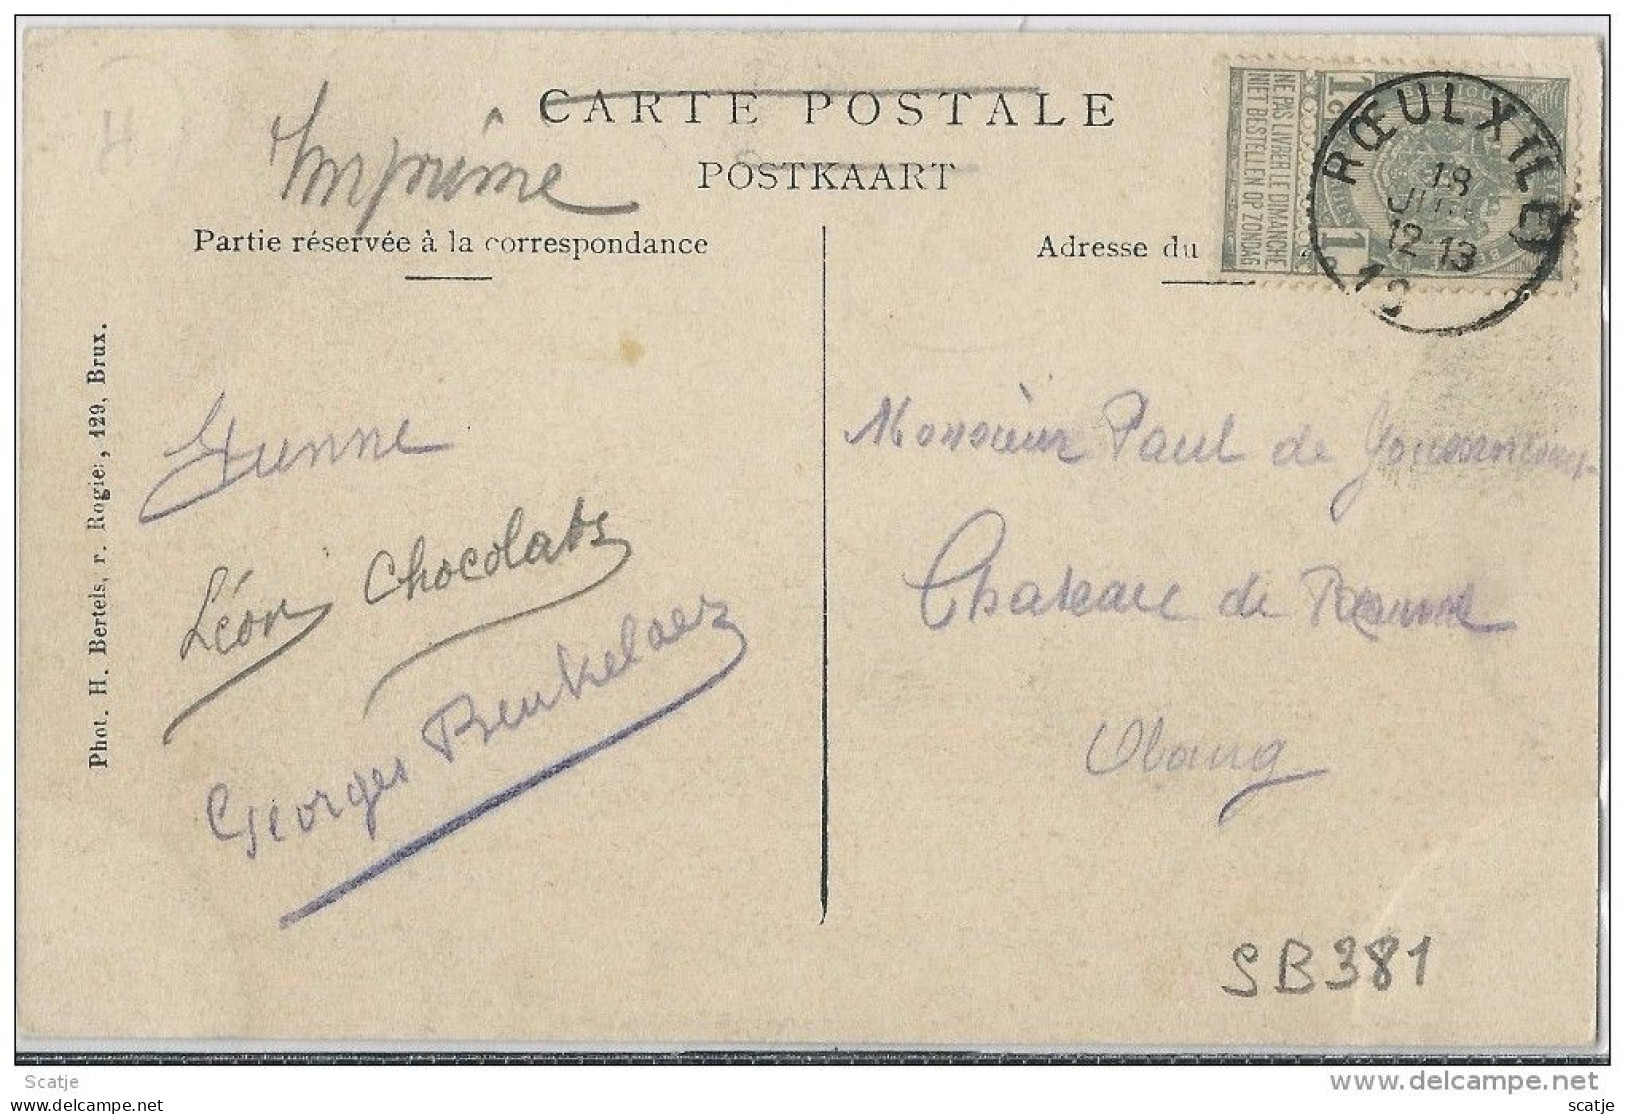 CARTE POSTALE
POSTKAART
Imprimé
Partie réservée à la correspondance
Adresse du
1c
NE PAS LIVRER LE DIMANCHE
NIET BESTELLEN OP ZONDAG
1c
RŒULX
18
12-13
Phot. H. Bertels, r. Rogier, 129, Brux.
Léon Chocolats
Georges Beukelaer
Monsieur Paul de
Chateau de
Obaug
SB381
Scatje
www.delcampe.net
scatje
scatje